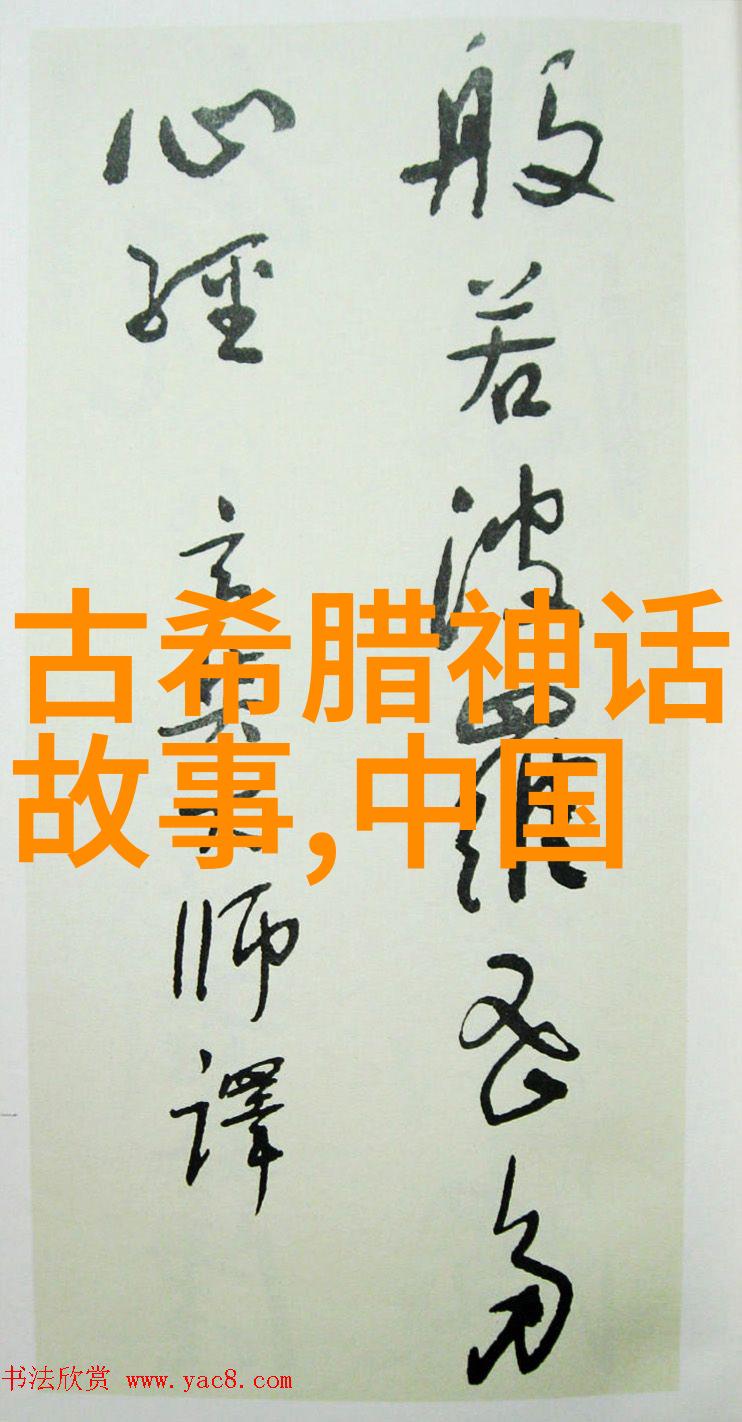 般若波羅蜜多
心經 玄奘大師譯
古希腊神话
故事,中国
书法欣赏 www.yac8.com